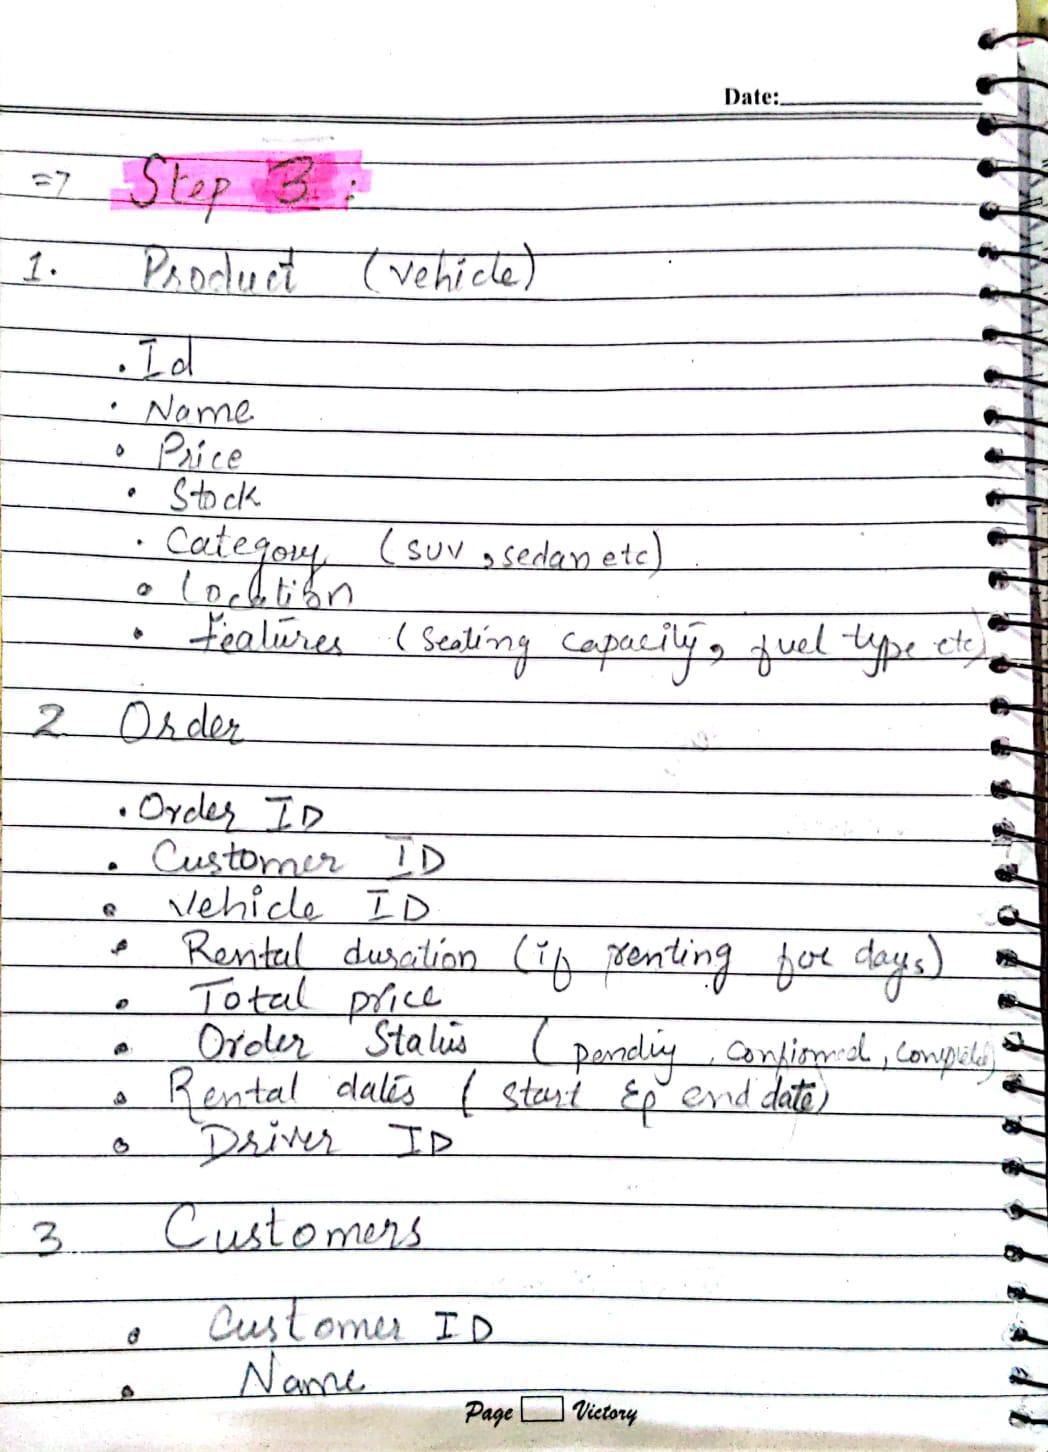 Date:
=> Step 3 :
1. Product (vehicle)
• Id
• Name
• Price
• Stock
• Category (SUV, sedan etc)
• Location
• Features (Seating capacity, fuel type etc)
2 Order
• Order ID
• Customer ID
• Vehicle ID
• Rental duration (if renting for days)
• Total price
• Order Status (pending, confirmed, completed)
• Rental dates (start & end date)
• Driver ID
3 Customers
• Customer ID
• Name
Page Victory